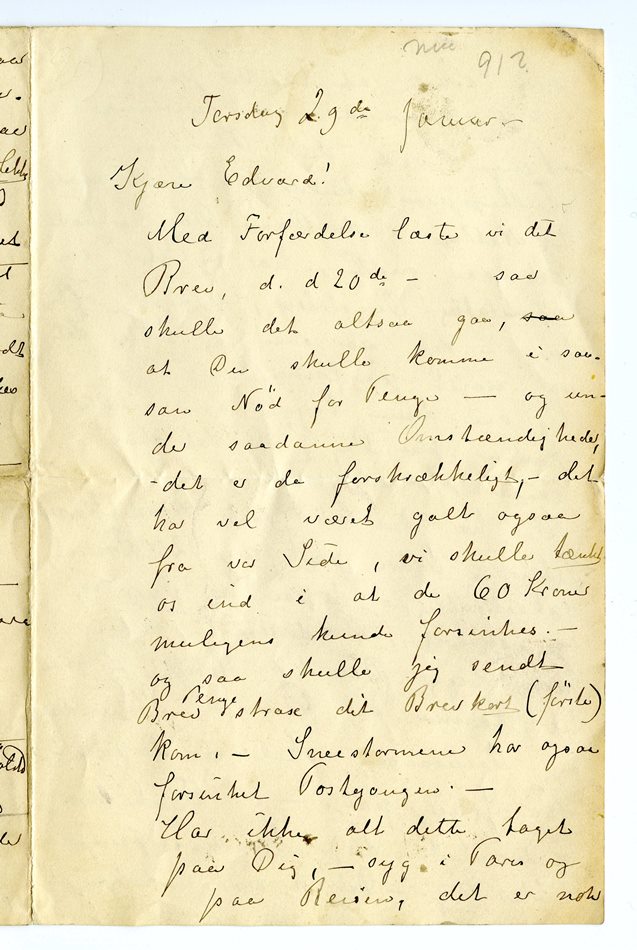 912
Torsdag 29de Januar
Kjære Edvard!
Med Forfærdelse læste vi dit
Brev, d. d 20de – saa
skulle det altsaa gaa, saa
at Du skulle komme i saa-
dan Nød for Penge — og un-
de saadanne Omstændigheder,
– det er da forskrækkeligt, – det
har vel været galt ogsaa
fra vor Side, vi skulle tænkt
os ind i at de 60 Kroner
muligens kunde forsinkes. –
og saa skulle jeg sendt
Penge
Brev strax dit Brevkort (første)
kom. – Sneestormene har ogsaa
forsinket Postgangen. –
Har ikke alt dette taget
paa Dig, – syg i Paris og
paa Reisen, det er nok